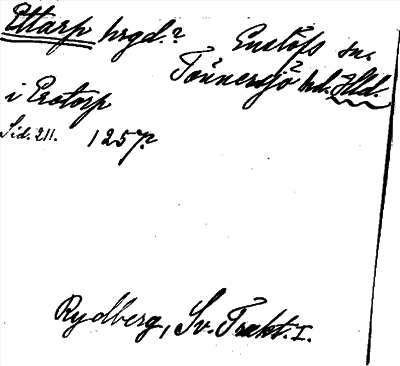 Ettarp hrgd.?
Enslöfs sn.
Tönnersjö hd. Hld.
i Erotorp
Sid. 211. 1257?
Rydberg, Sv. Trakt. I.